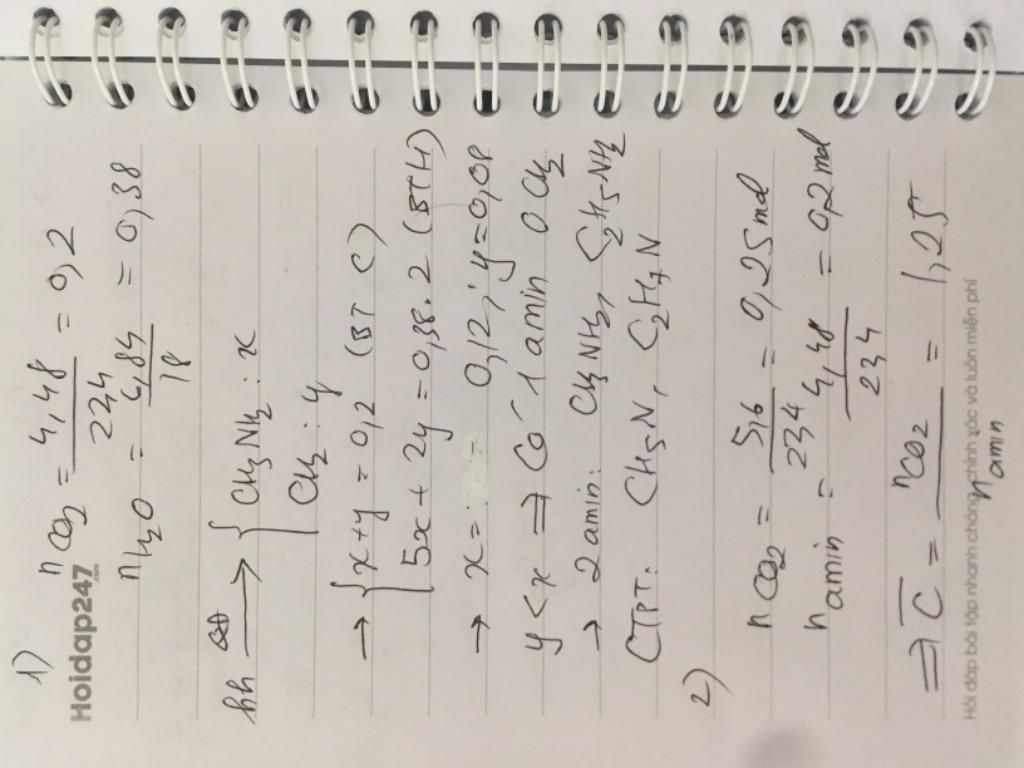 1)
Hoidap247
.com
nCO2 = 4,48/22,4 = 0,2
nH2O = 6,84/18 = 0,38
hh qđ→ { CH3NH2 : x
CH2 : y
→ { x + y = 0,2 (BT C)
5x + 2y = 0,38.2 (BTH)
→ x = 0,12 ; y = 0,08
y < x ⇒ Có 1 amin 0 CH2
→ 2 amin: CH3NH2, C2H5NH2
CTPT: CH5N, C2H7N
2)
nCO2 = 5,6/22,4 = 0,25 mol
namin = 4,48/22,4 = 0,2 mol
⇒ C̅ = nCO2/namin = 1,25
Hỏi đáp bài tập nhanh chóng, chính xác và luôn miễn phí